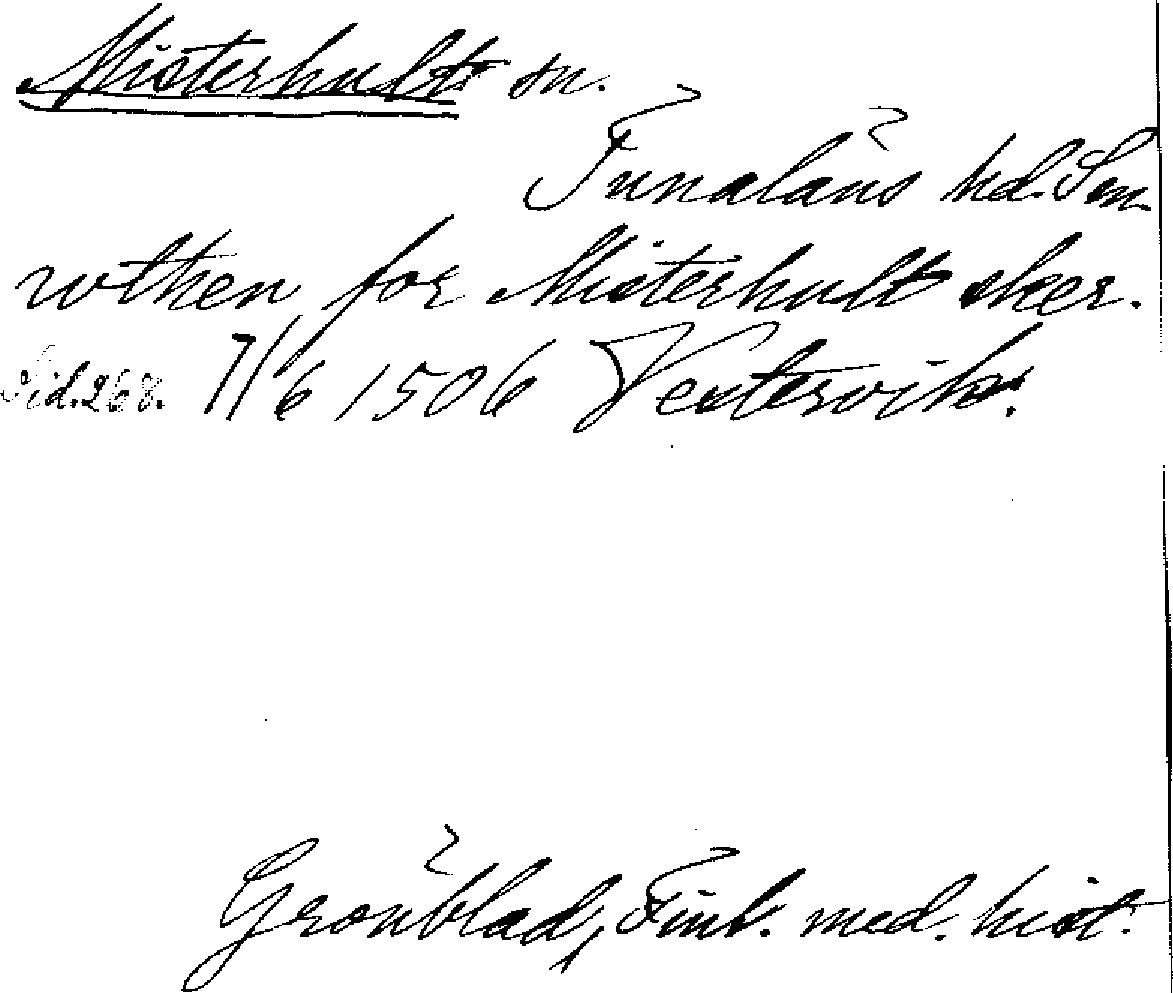 Misterhults sn.
Tunaläns hd. Sm.
wthen for Misterhult sker.
Sid. 268. 7/6 1506 Vestervik.
Grönblad, Finl. med. hist.